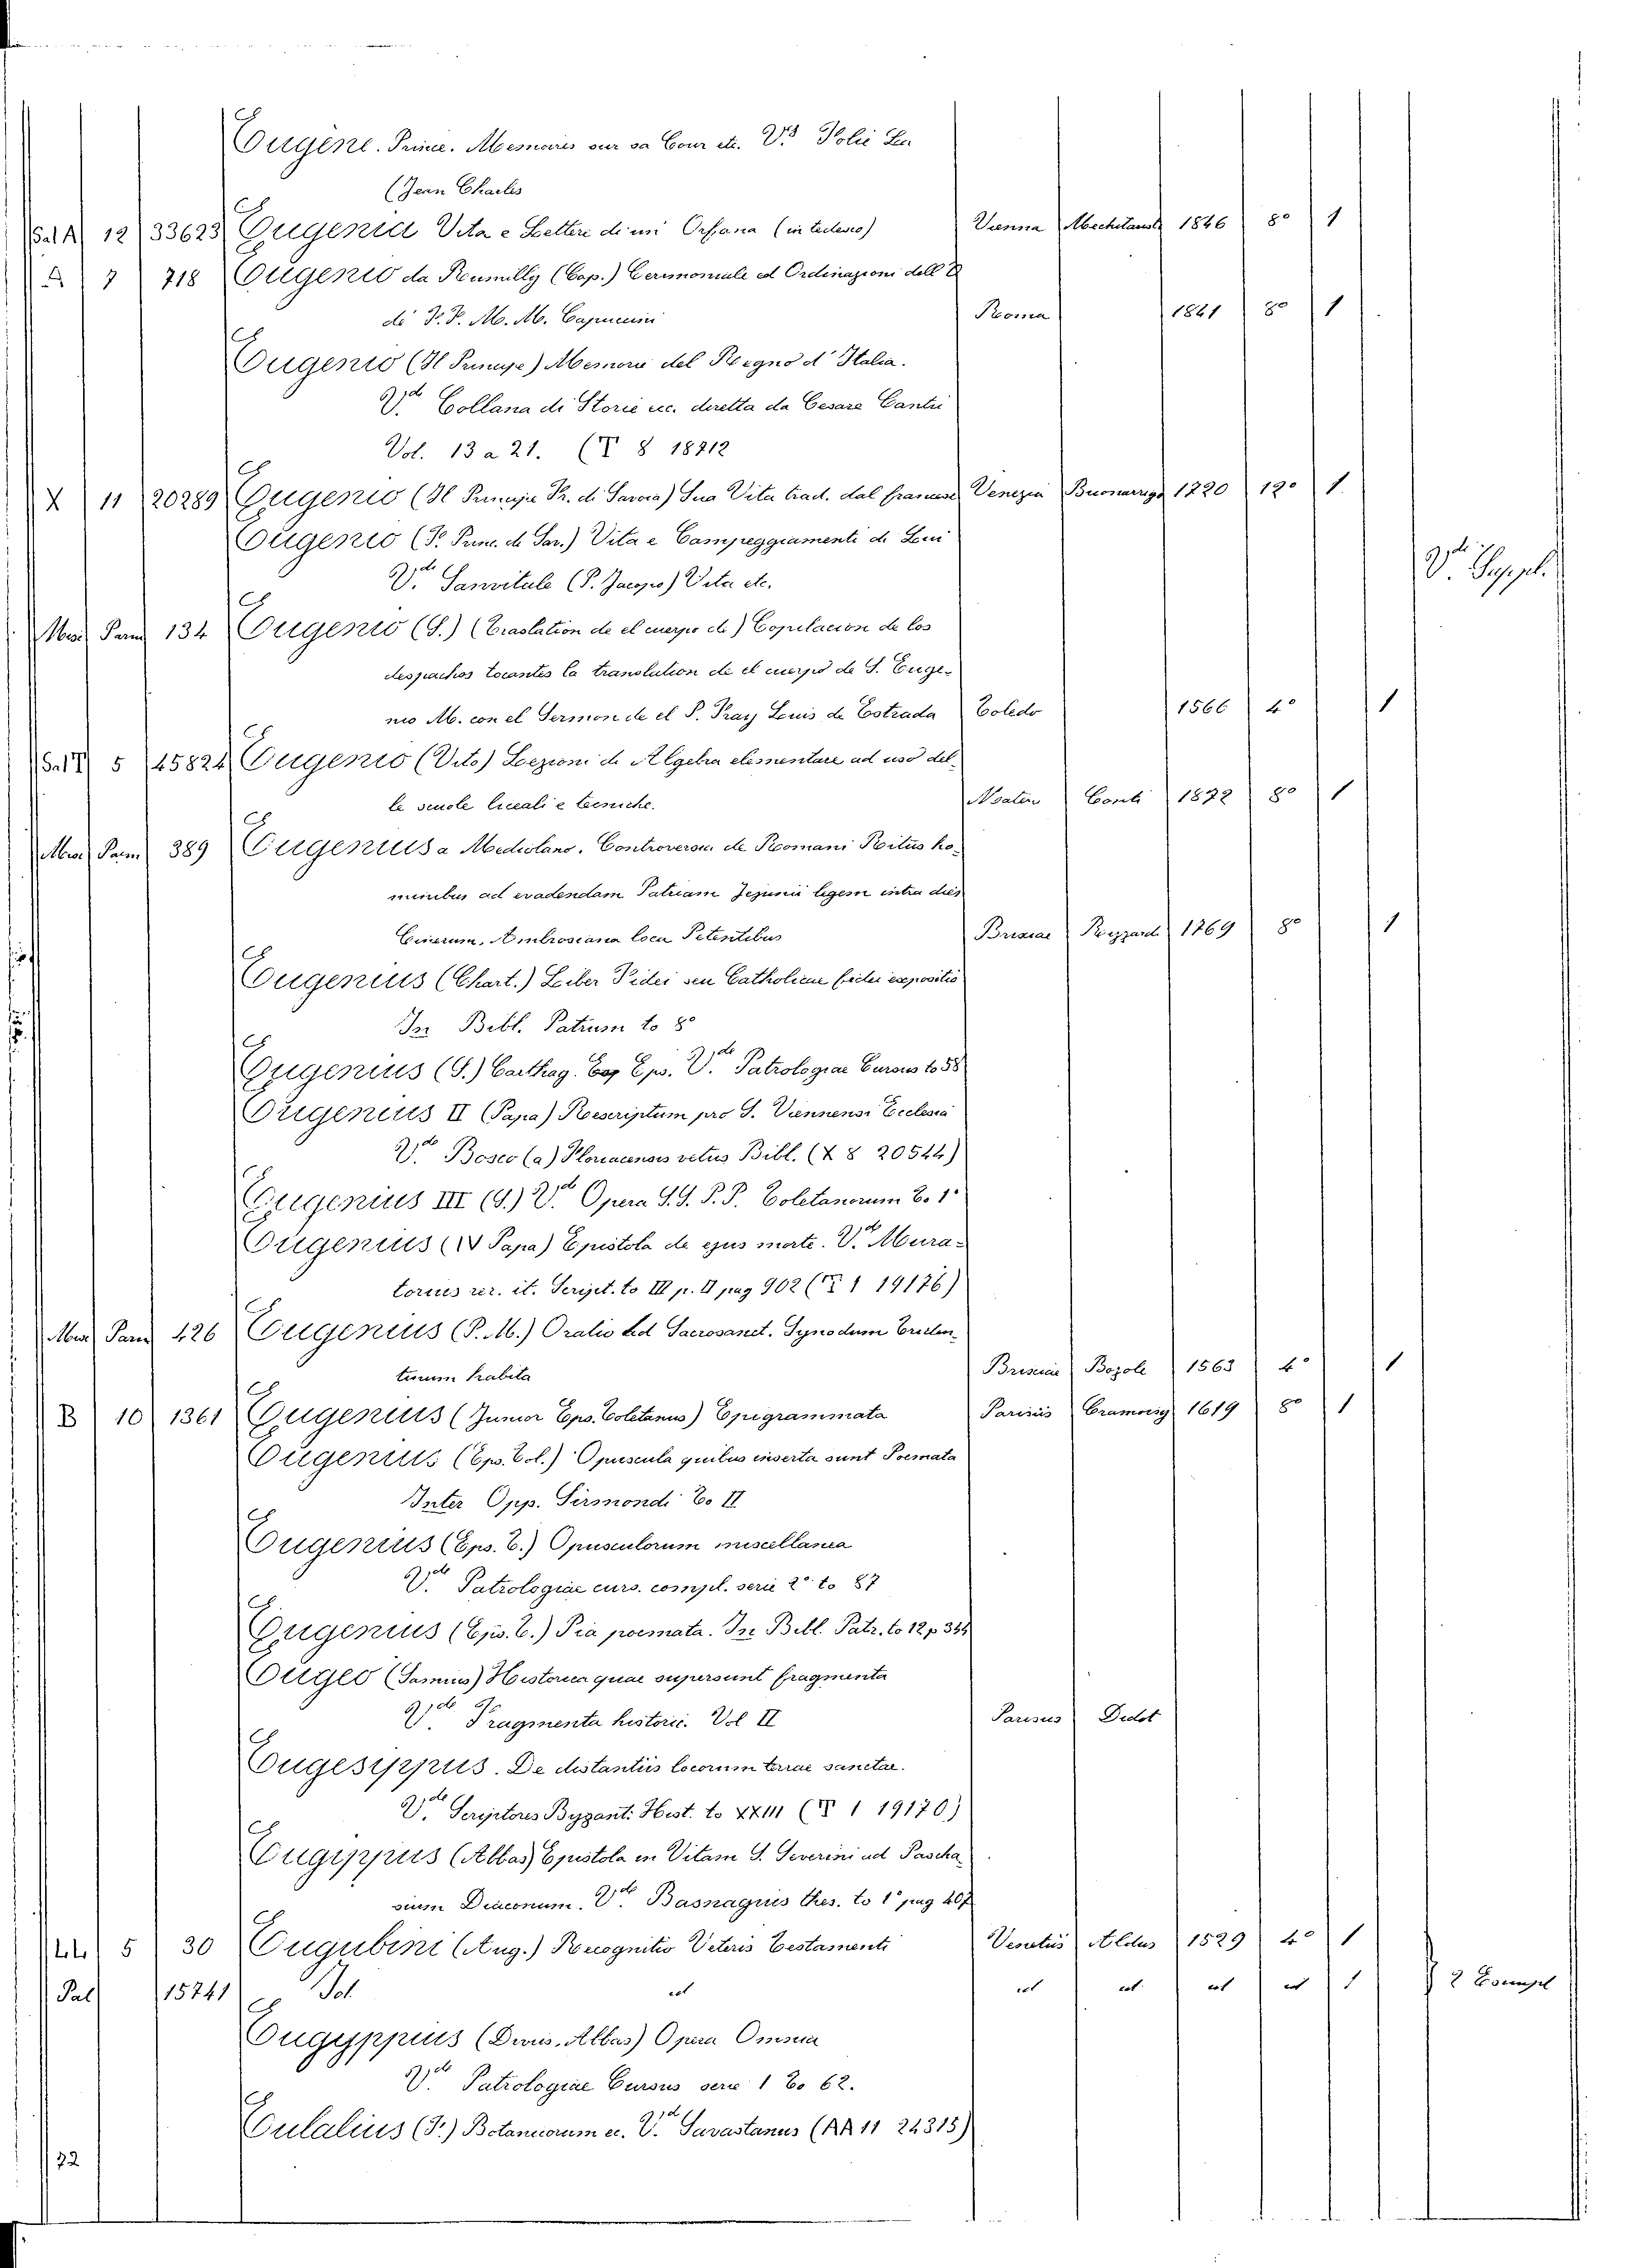 Eugène. Prince. Memoires sur sa Cour etc. V.d Folié
(Jean Charles
Sal A 12 33623 Eugenia Vita e Lettere di un' Orfana (in tedesco) Vienna Mechitarist 1846 8° 1
7 718 Eugenio da Rumilly (Cap.) Cerimoniale ed Ordinazioni dell
de' P. P. M. M. Capuccini Roma 1841 8° 1
Eugenio (Il Principe) Memorie del Regno d'Italia.
V.de Collana di Storie ecc. diretta da Cesare Cantù
Vol. 13 a 21. (T 8 18712
X 11 20289 Eugenio (Il Principe Pr. di Savoia) Sua Vita trad. dal francese Venezia Buonarrigo 1720 12° 1.
Eugenio (P. Princ. di Sav.) Vita e Campeggiamenti di Lui
V.de Sanvitale (P. Jacopo) Vita etc. V.de Suppl.
Misc Parm 134 Eugenio (S.) (Traslation de el cuerpo de) Copilacion de los
despachos tocantes la translation de el cuerpo de S. Euge-
nio M. con el Sermon de el P. Fray Louis de Estrada Toledo 1566 4° 1
Sal 5 45824 Eugenio (Vito) Lezioni di Algebra elementare ad uso del-
le scuole liceali e tecniche. Conti 1872 8° 1
Misc Parm 389 Eugenius a Mediolano. Controversia de Romani Ritus ho-
minibus ad evadendam Patriam Jejunii legem intra dies
Cinerum, Ambrosiana loca Petentibus Brixiae Rizzardi 1769 8° 1
Eugenius (Chart.) Liber Fidei seu Catholicae fidei expositio
In Bibl. Patrum to 8°
Eugenius (S.) Carthag. Eps. V.de Patrologiae Cursus to 58
Eugenius II (Papa) Rescriptum pro S. Viennensi Ecclesia
V.de Bosco (a) Floriacensis vetus Bibl. (X 8 20544)
Eugenius III (S.) V.de Opera S. S. P. P. Toletanorum T. 1°
Eugenius (IV Papa) Epistola de ejus morte. V.de Mura-
torius rer. it. Script. to III p. II pag 902 (T 1 19176)
Misc Parm 426 Eugenius (P. M.) Oratio ad Sacrosanct. Synodum Triden-
tinum habita Brixiae Bozole 1563 4° 1
B 10 1361 Eugenius (Junior Eps. Toletanus) Epigrammata Parisiis Cramoisy 1619 8° 1
Eugenius (Eps. Tol.) Opuscula quibus inserta sunt Poemata
Inter Opp. Sirmondi To II
Eugenius (Eps. T.) Opusculorum miscellanea
V.de Patrologiae curs. compl. serie 2° to 87
Eugenius (Eps. T.) Pia poemata. In Bibl. Patr. to 12 p 345
Eugeo (Samius) Historica quae supersunt fragmenta
V.de Fragmenta historic. Vol II Parisiis Didot
Eugesippus. De distantiis locorum terrae sanctae.
V.de Scriptores Byzant: Hist. to XXIII (T 1 19170)
Eugippius (Abbas) Epistola in Vitam S. Severini ad Pascha-
sium Diaconum. V.de Basnagius thes. to 1° pag 407
LL 5 30 Eugubini (Aug.) Recognitio Veteris Testamenti Venetiis Aldus 1529 4° 1
Pal 15741 Id. id id id. id id 1 2 Exempl
Eugyppius (Divus, Abbas) Opera Omnia
V.de Patrologiae Cursus serie 1 To 62.
Eulalius (F.) Botanicorum ec. V.de Savastanus (AA 11 24315)
22